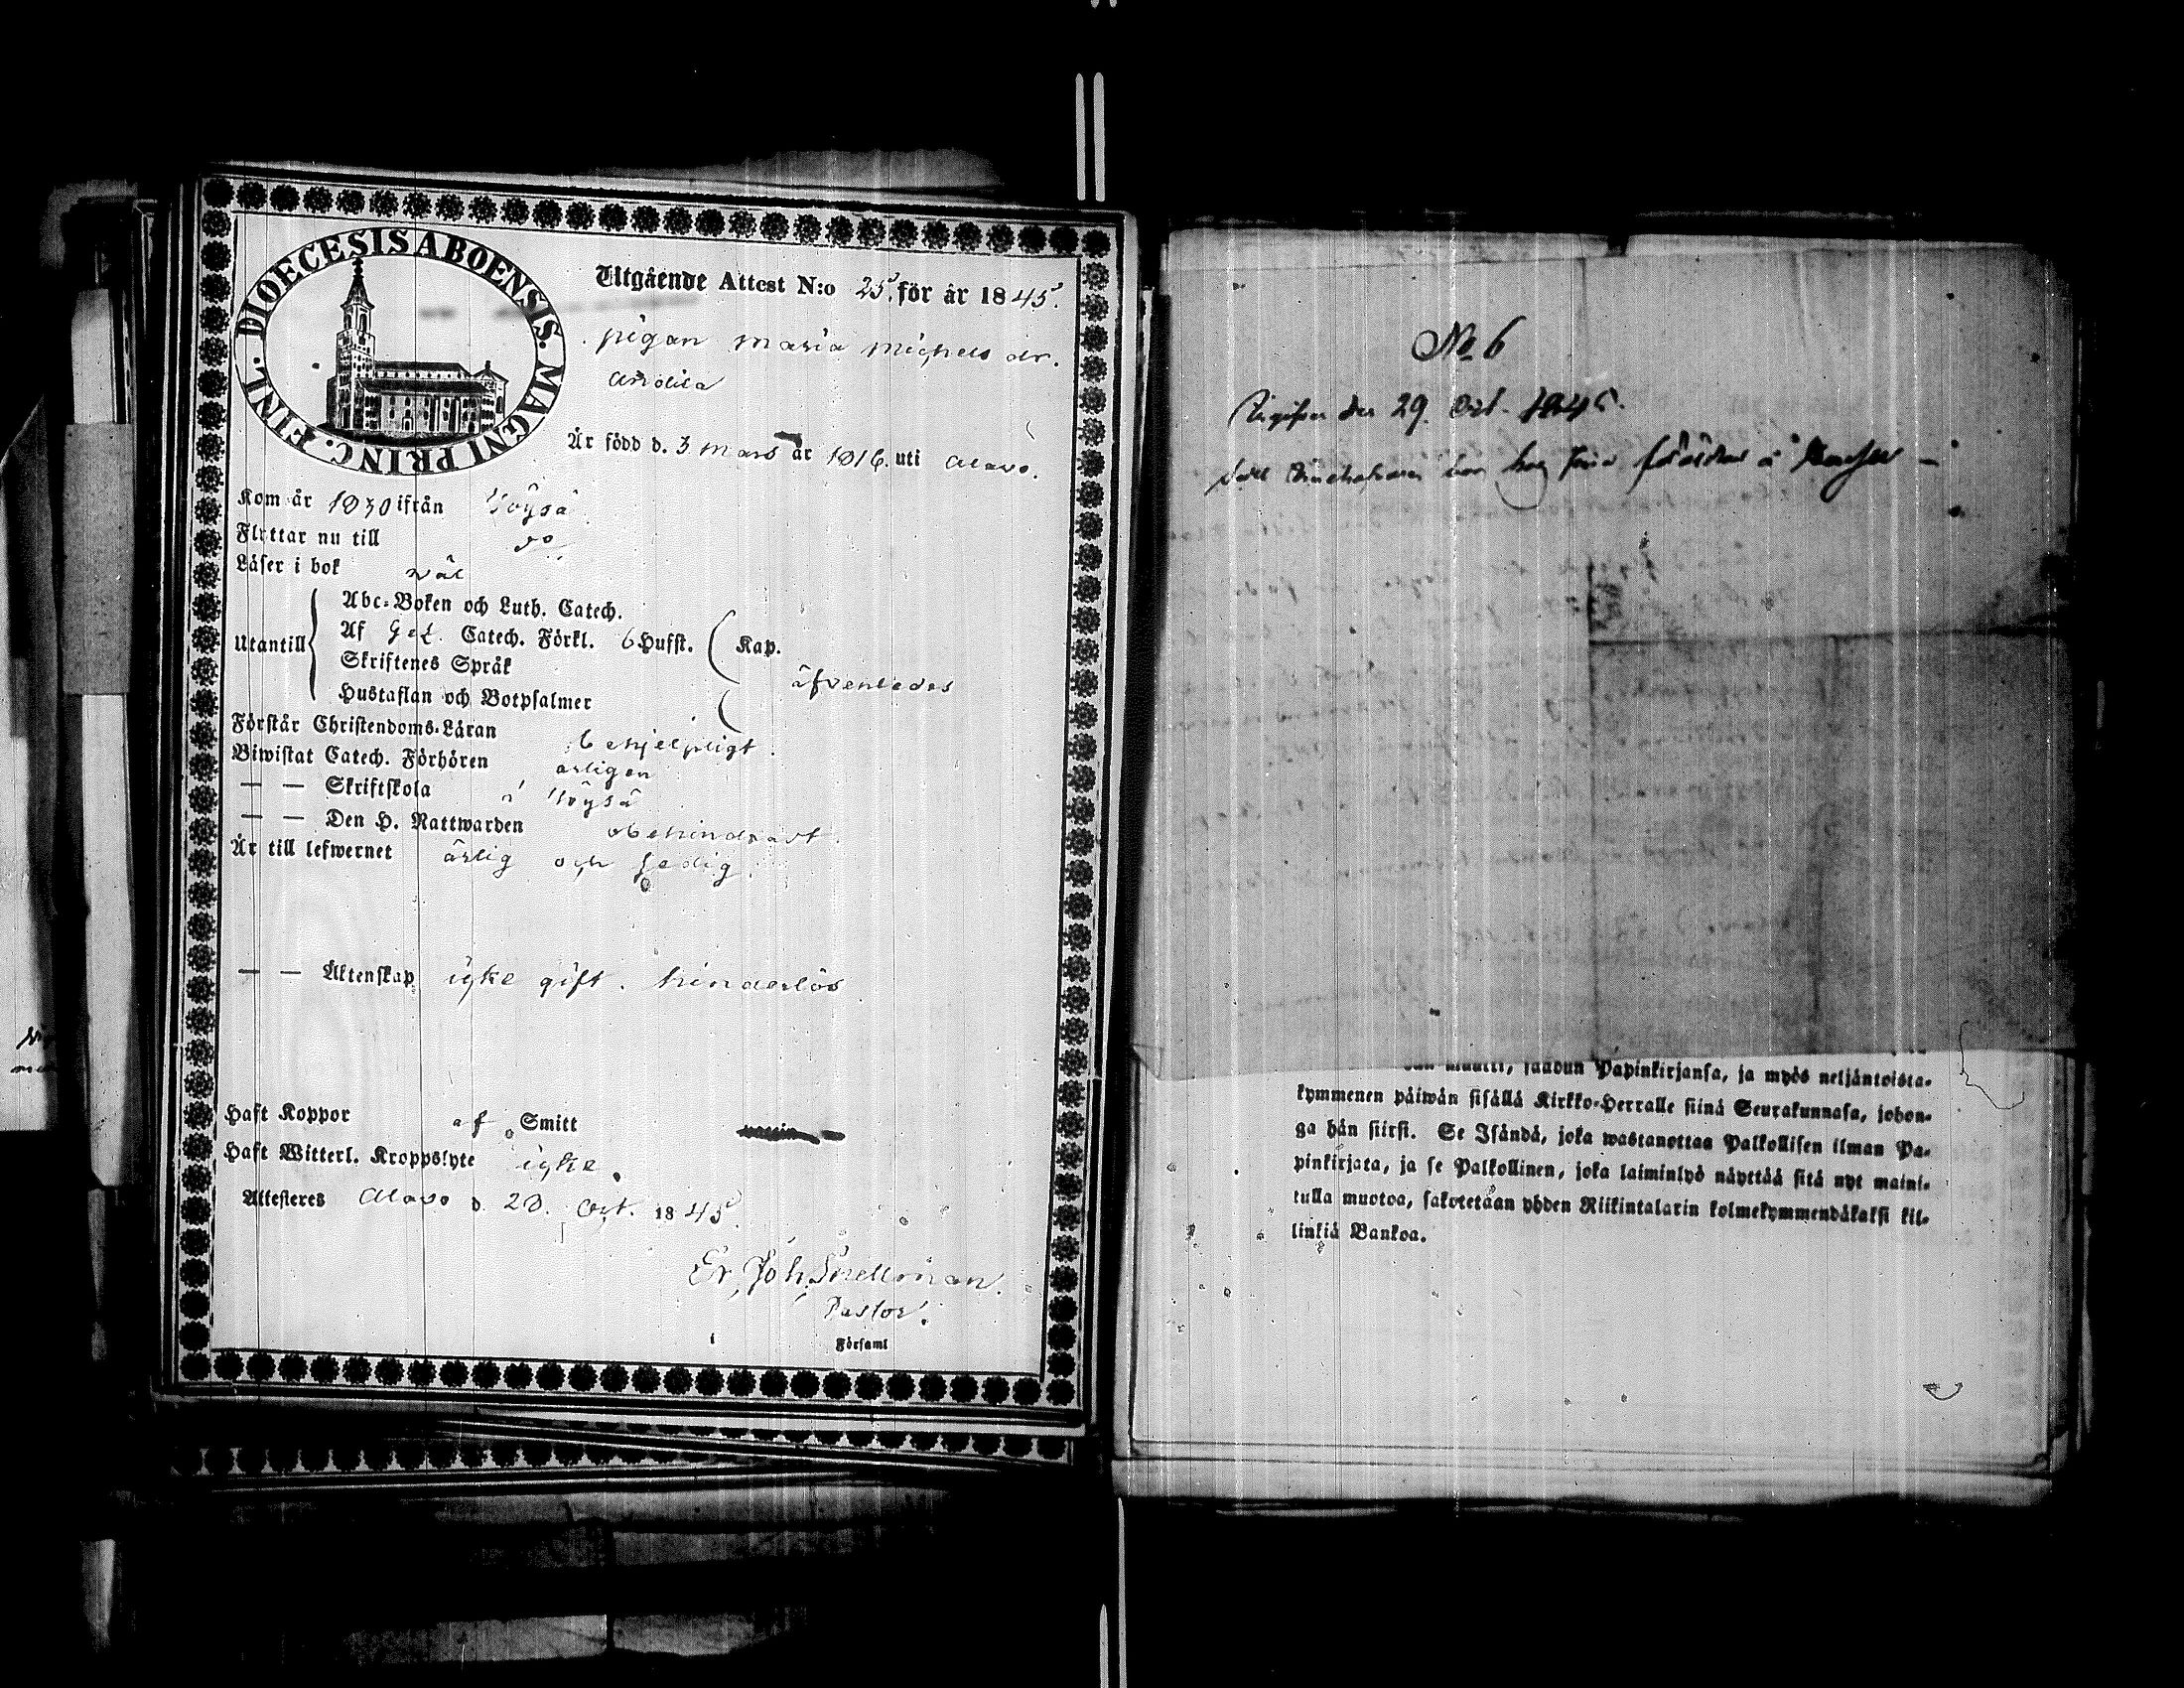 DIOECESIS ABOENSIS. MAGNI PRINC. FINL.
Utgående Attest N:o 25. för år 1845.
pigan Maria Michels dr.
Är född d. 3 Mars år 1816. uti Alavo.
Kom år 1830 ifrån Töysä
Flyttar nu till do
Läser i bok wäl
Utantill
Abc-Boken och Luth. Catech.
Af Catech. Förkl. 6 Hufst. Kap.
Skriftenes Språk
Hustaflan och Botpsalmer
äfvenledes
Förstår Christendoms-Läran behjelpligt.
Biwistat Catech. Förhören årligen
— — Skriftskola i Töysä
— — Den H. Nattwarden obehindradt.
Är till lefwernet ärlig och sedig.
— — Äktenskap icke gift. hinderlös
Haft Koppor af Smitt
Haft Witterl. Kroppslyte icke.
Attesteres Alavo d. 28. Oct. 1845.
Er. Joh. Snellman.
Pastor.
Församl
No 6
29. Oct. 1845.
saadun Papinkirjansa, ja myös neljäntoista-
kymmenen päiwän sisällä Kirkko-Herralle siinä Seurakunnasa, johon-
ga hän siirsi. Se Isändä, joka wastanottaa Palkollisen ilman Pa-
pinkirjata, ja se Palkollinen, joka laiminlyö näyttää sitä nyt maini-
tulla muotoa, sakotetaan yhden Riikintalarin kolmekymmendäkaksi kil-
linkiä Bankoa.